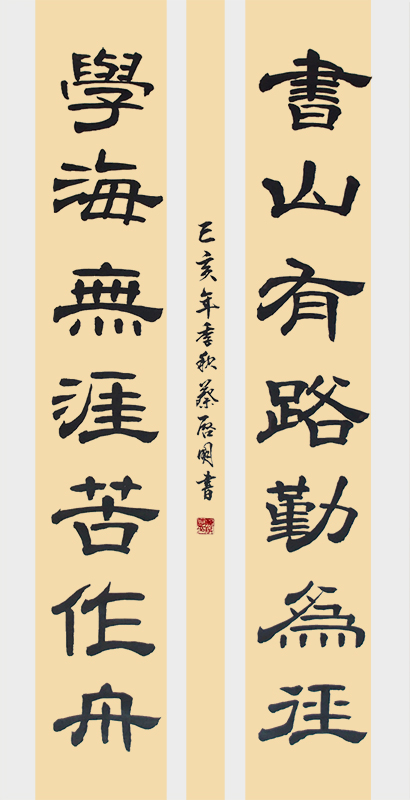 書山有路勤爲徑
學海無涯苦作舟
己亥年季秋蔡启国書